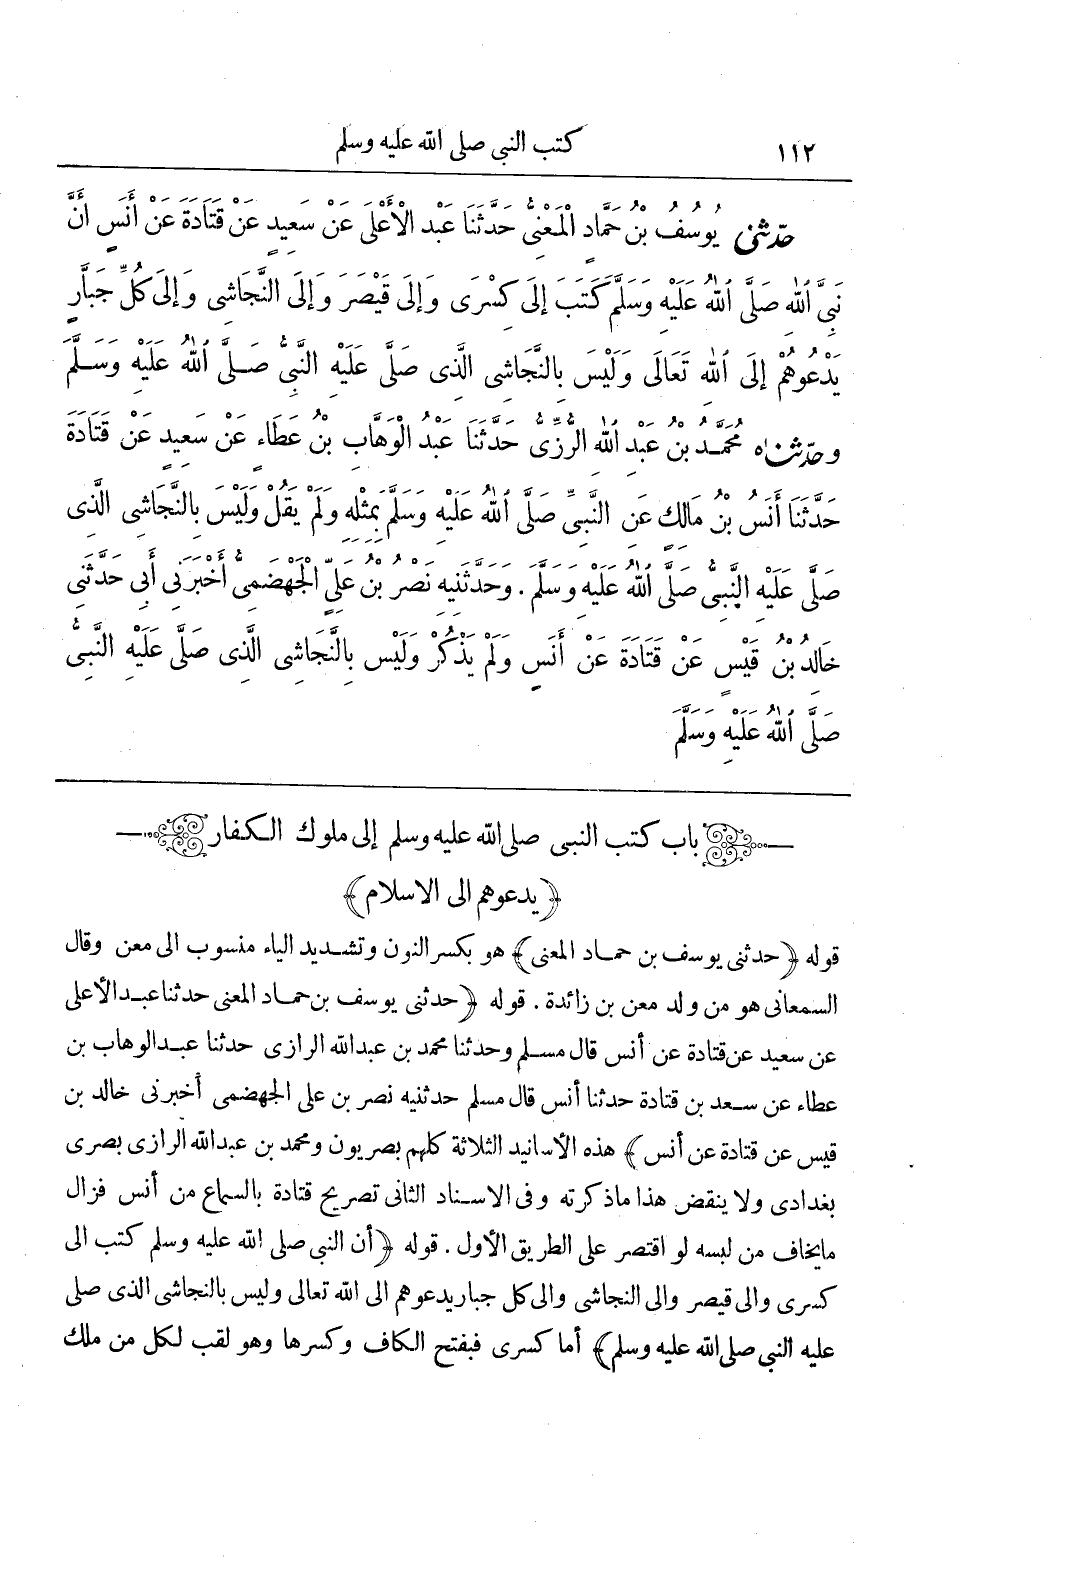 ١١٢ كتب النبى صلى الله عليه وسلم
حدّثنى يُوسُفُ بْنُ حَمَّادٍ الْمَعْنِىُّ حَدَّثَنَا عَبْدُ الْأَعْلَى عَنْ سَعِيدٍ عَنْ قَتَادَةَ عَنْ أَنَسٍ أَنَّ
نَبِىَّ اللهِ صَلَّى اللهُ عَلَيْهِ وَسَلَّمَ كَتَبَ إِلَى كِسْرَى وَإِلَى قَيْصَرَ وَإِلَى النَّجَاشِى وَإِلَى كُلِّ جَبَّارٍ
يَدْعُوهُمْ إِلَى اللهِ تَعَالَى وَلَيْسَ بِالنَّجَاشِى الَّذِى صَلَّى عَلَيْهِ النَّبِىُّ صَلَّى اللهُ عَلَيْهِ وَسَلَّمَ
وحدّثناه مُحَمَّدُ بْنُ عَبْدِ اللهِ الرُّزِّىُّ حَدَّثَنَا عَبْدُ الْوَهَّابِ بْنُ عَطَاءٍ عَنْ سَعِيدٍ عَنْ قَتَادَةَ
حَدَّثَنَا أَنَسُ بْنُ مَالِكٍ عَنِ النَّبِىِّ صَلَّى اللهُ عَلَيْهِ وَسَلَّمَ بِمِثْلِهِ وَلَمْ يَقُلْ وَلَيْسَ بِالنَّجَاشِى الَّذِى
صَلَّى عَلَيْهِ النَّبِىُّ صَلَّى اللهُ عَلَيْهِ وَسَلَّمَ . وَحَدَّثَنِيهِ نَصْرُ بْنُ عَلِىٍّ الْجَهْضَمِىُّ أَخْبَرَنِى أَبِى حَدَّثَنِى
خَالِدُ بْنُ قَيْسٍ عَنْ قَتَادَةَ عَنْ أَنَسٍ وَلَمْ يَذْكُرْ وَلَيْسَ بِالنَّجَاشِى الَّذِى صَلَّى عَلَيْهِ النَّبِىُّ
صَلَّى اللهُ عَلَيْهِ وَسَلَّمَ
باب كتب النبى صلى الله عليه وسلم إلى ملوك الكفار
﴿يدعوهم الى الاسلام﴾
قوله ﴿حدثنى يوسف بن حماد المعنى﴾ هو بكسر النون وتشديد الياء منسوب الى معن وقال
السمعانى هو من ولد معن بن زائدة . قوله ﴿حدثنى يوسف بن حماد المعنى حدثنا عبد الأعلى
عن سعيد عن قتادة عن أنس قال مسلم وحدثنا محمد بن عبدالله الرازى حدثنا عبد الوهاب بن
عطاء عن سعد بن قتادة حدثنا أنس قال مسلم حدثنيه نصر بن على الجهضمى أخبرنى خالد بن
قيس عن قتادة عن أنس﴾ هذه الأسانيد الثلاثة كلهم بصريون ومحمد بن عبدالله الرازى بصرى
بغدادى ولا ينقض هذا ماذكرته وفى الاسناد الثانى تصريح قتادة بالسماع من أنس فزال
مايخاف من لبسه لو اقتصر على الطريق الأول . قوله ﴿أن النبى صلى الله عليه وسلم كتب الى
كسرى والى قيصر والى النجاشى والى كل جبار يدعوهم الى الله تعالى وليس بالنجاشى الذى صلى
عليه النبى صلى الله عليه وسلم﴾ أما كسرى فبفتح الكاف وكسرها وهو لقب لكل من ملك